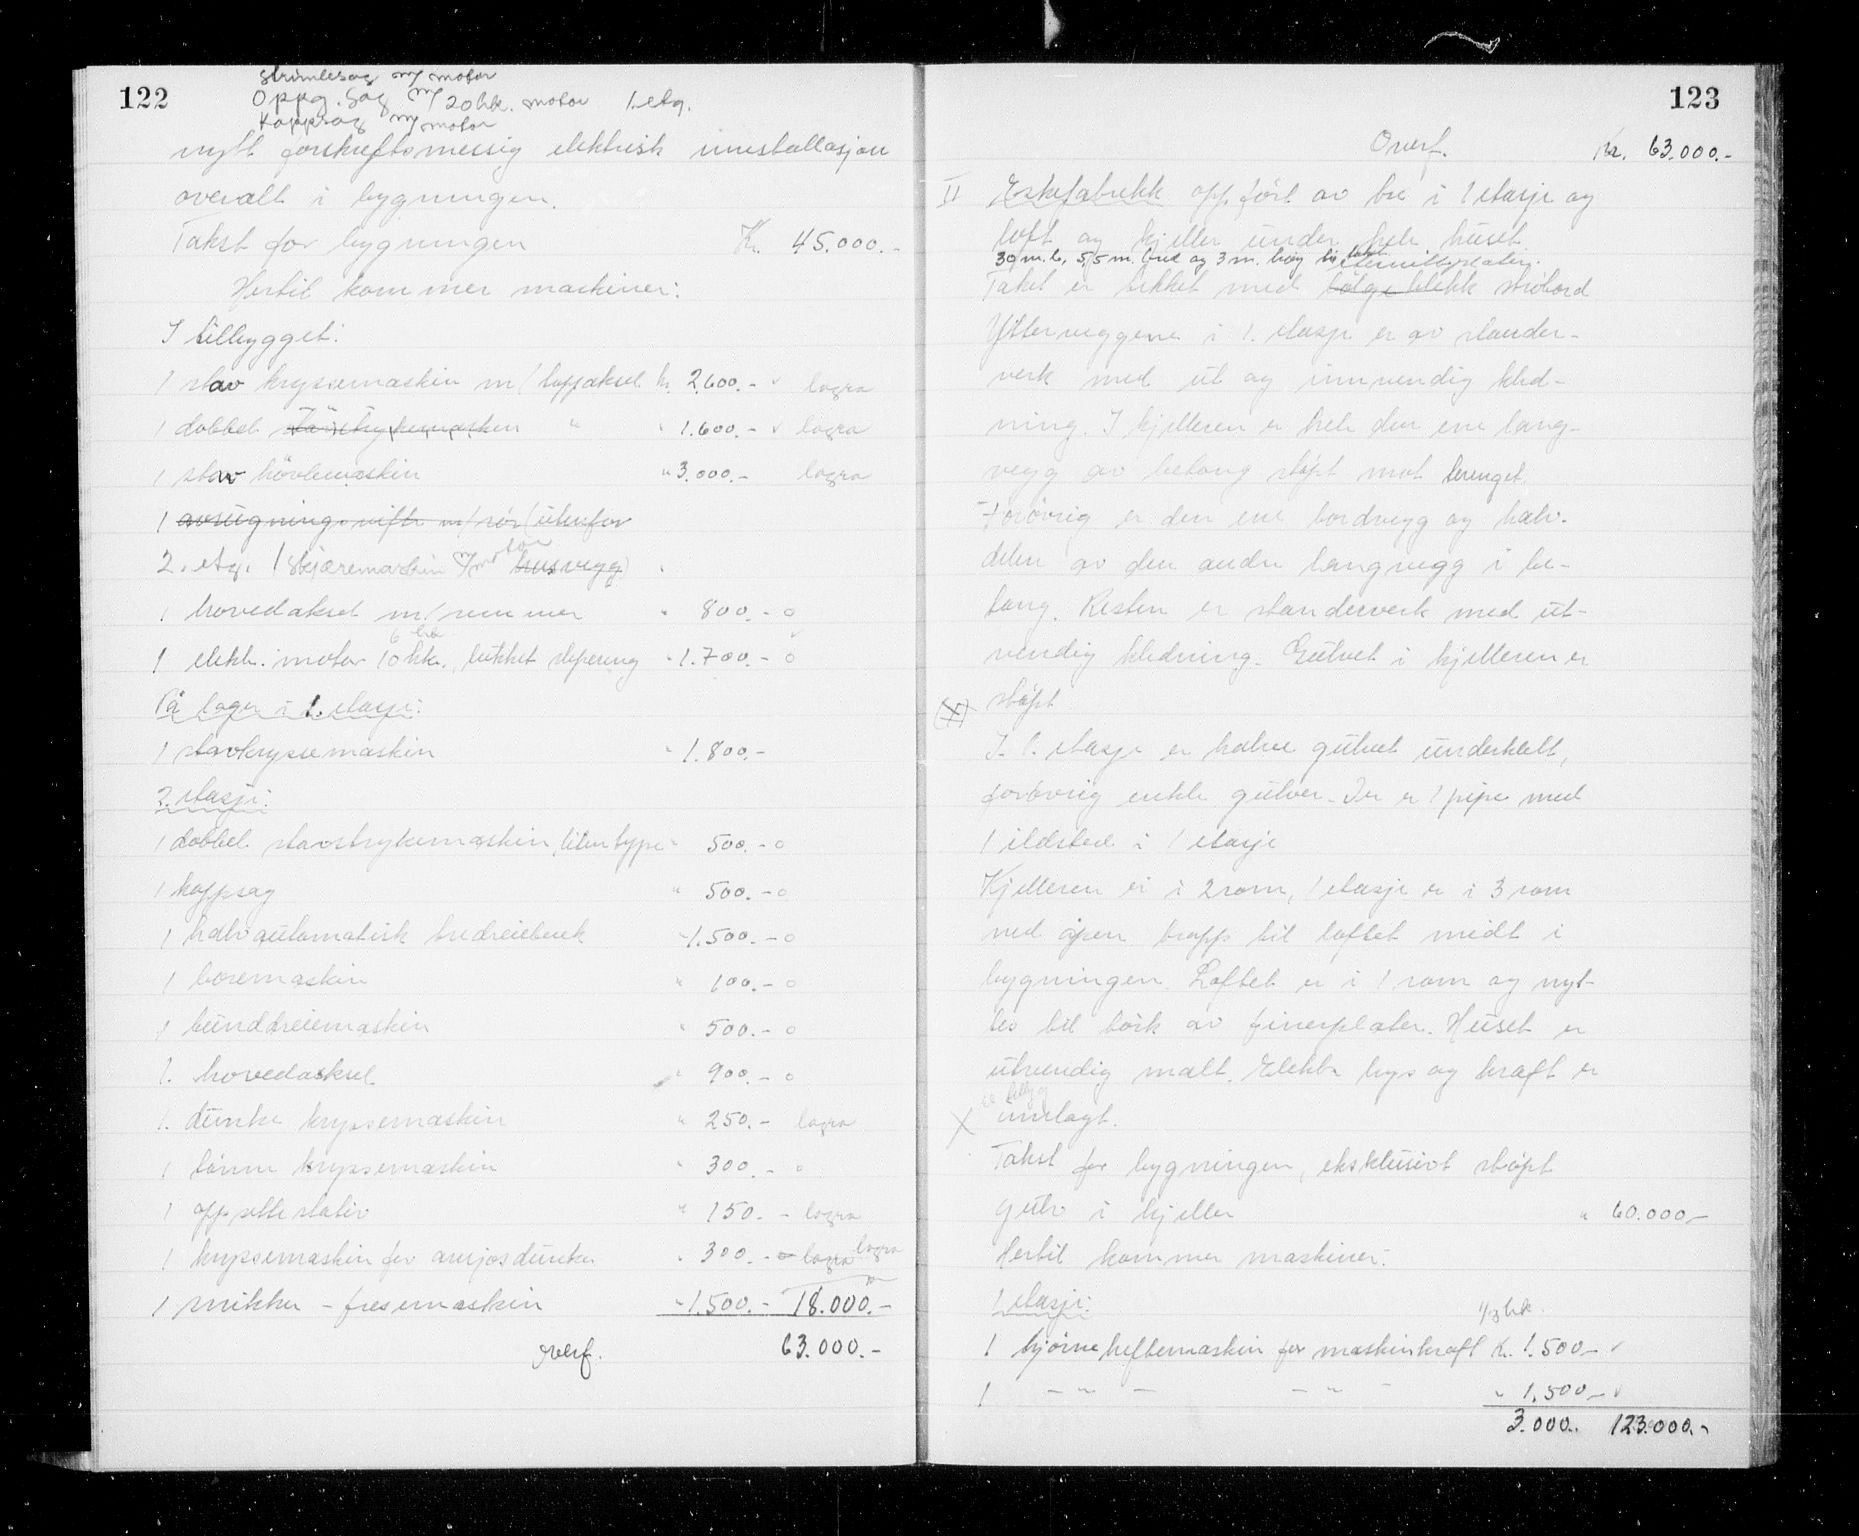 122
strimlesag m/ motor
Oppg. Sag m/ 20 hk. motor 1. etg.
Kappsag m/ motor
nytt forskriftsmessig elektrisk innstallasjon
overalt i bygningen.
Takst for bygningen Kr. 45.000.-
Hertil kommer maskiner:
I tilbygget:
1 stav kryssemaskin m/ toppaksel kr. 2.600.- v lagra
1 dobbel " " 1.600.- v lagra
1 stav hövlemaskin " 3.000.- lagra
1 avsugningsvifte m/ rör (utenfor
2. etg. 1 skjæremaskin m/ motor husvegg)
1 hovedaksel m/ remmer " 800.- o
6 hk
1 elektr. motor 10 hk., lukket slepering " 1.700.- o
På lager i 1. etasje:
1 stavkryssemaskin " 1.800.-
2. etasje:
1 dobbel stavstrykemaskin, liten type " 500.- o
1 kappsag " 500.- o
1 halvautomatisk tredreiebenk " 1.500.- o
1 boremaskin " 100.- o
1 bunddreiemaskin " 500.- o
1. hovedaksel " 900.- o
1. dunke kryssemaskin " 250.- lagra
1 tönne kryssemaskin " 300.- o
1 oppsette stativ " 150.- lagra
1 kryssemaskin for ansjosdunker " 300.- o lagra lagra
1 snikker - fresemaskin " 1.500.- 18.000.-
Overf. 63.000.-
123
Overf. Kr. 63.000.-
II Eskefabrikk oppfört av tre i 1 etasje og
loft og kjeller under hele huset.
30 m. l., 5,5 m. bred og 3 m. høg til taket eternittplater.
Taket er tekket med bölgeblekk stöbord
Ytterveggene i 1. etasje er av stender-
verk med ut og innvendig kled-
ning. I kjelleren er hele den ene lang-
vegg av betong støpt mot terrenget.
Forövrig er den ene bordvegg og halv-
delen av den andre langvegg i be-
tong. Resten er stenderverk med ut-
vendig kledning. Gulvet i kjelleren er
(X) støpt
I. 1. etasje er halve gulvet underkledt,
forövrig enkle gulver. Der er 1 pipe med
1 ildsted i 1 etasje
Kjelleren er i 2 rom, 1 etasje er i 3 rom
med åpen trapp til loftet midt i
bygningen. Loftet er i 1 rom og nyt-
tes til törk av finerplater. Huset er
utvendig malt. Elektr lys og kraft er
X innlagt.
Takst for bygningen, eksklusivt støpt
gulv i kjeller " 60.000.-
Hertil kommer maskiner:
1 etasje:
1/3 hk.
1 hjörneheftemaskin for maskinkraft Kr. 1.500.- v
1 - " - - " - " 1.500.- v
3.000.- 123.000.-